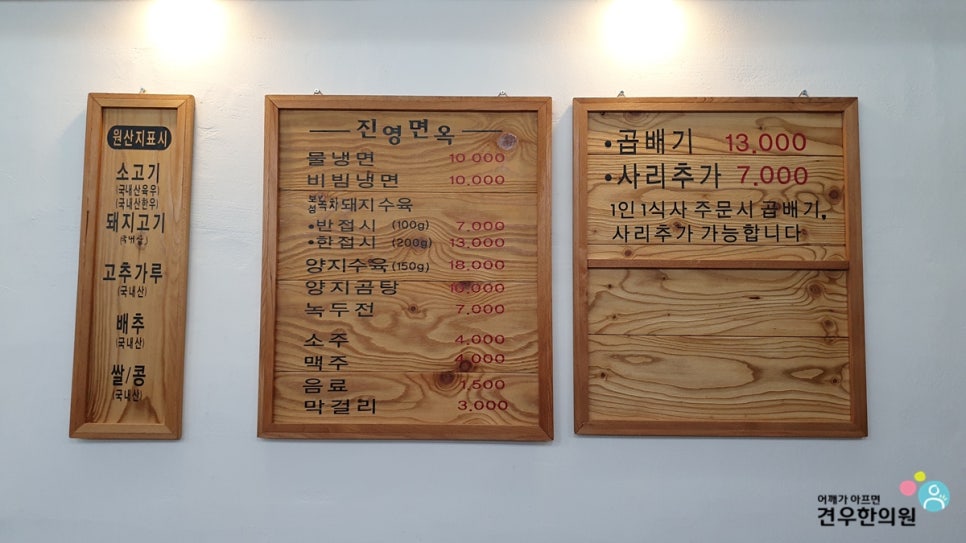 원산지표시
소고기
(국내산육우)
(국내산한우)
돼지고기
고추가루
(국내산)
배추
(국내산)
쌀/콩
(국내산)
진영면옥
물냉면 10,000
비빔냉면 10,000
보성녹차돼지수육
•반접시 (100g) 7,000
•한접시 (200g) 13,000
양지수육(150g) 18,000
양지곰탕 10,000
녹두전 7,000
소주 4,000
맥주 4,000
음료 1,500
막걸리 3,000
•곱배기 13,000
•사리추가 7,000
1인 1식사 주문시 곱배기,
사리추가 가능합니다
어깨가 아프면
견우한의원